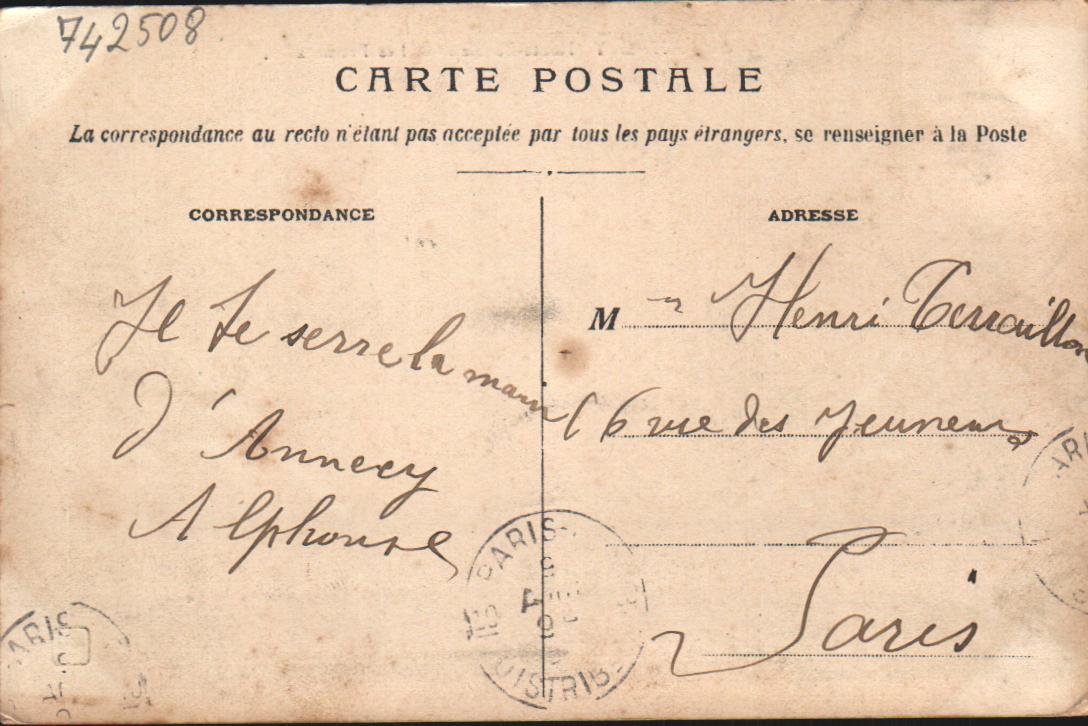 742508
CARTE POSTALE
La correspondance au recto n'étant pas acceptée par tous les pays étrangers, se renseigner à la Poste
CORRESPONDANCE
Je te serre la main
d'Annecy
Alphonse
ADRESSE
M r Henri Terraillon
16 rue des Jeuneurs
Paris
PARIS
DISTRIB
ARIS
ARI